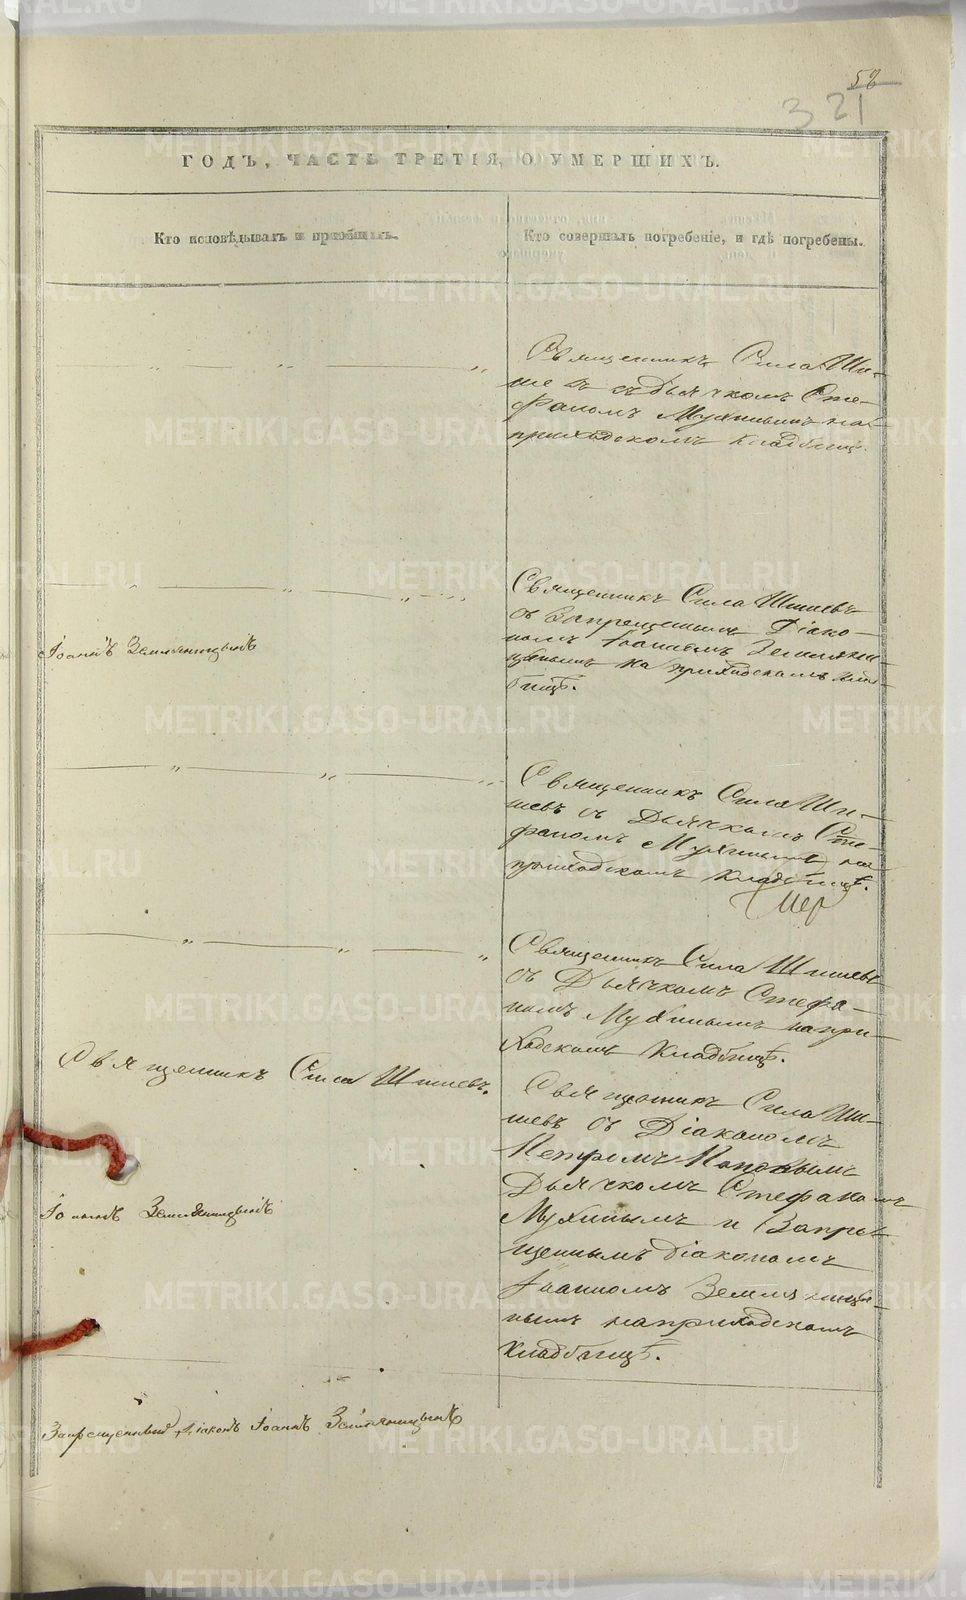 52
321
ГОДЪ, ЧАСТЬ ТРЕТІЯ, О УМЕРШИХЪ.
Кто исповѣдывалъ и пріобщалъ.
Кто совершалъ погребеніе, и гдѣ погребены.
Священникъ Сила Ши-
шевъ съ дьячкомъ Сте-
фаномъ Мухинымъ на
приходскомъ кладбищѣ.
Священникъ Сила Шишевъ
съ Запрещеннымъ Діако-
номъ Іоанномъ Земляни-
цынымъ на приходскомъ клад-
бищѣ.
Іоаннъ Земляницынъ
Священникъ Сила Ши-
шевъ съ Дьячкомъ Сте-
фаномъ Мухинымъ на
приходскомъ кладбищѣ.
Священникъ Сила Шишевъ
съ Дьячкомъ Стефа-
номъ Мухинымъ на при-
ходскомъ кладбищѣ.
Священникъ Сила Шишевъ.
Священникъ Сила Ши-
шевъ съ Діакономъ
Петромъ Поповымъ
Дьячкомъ Стефаномъ
Мухинымъ и Запре-
щеннымъ діакономъ
Іоанномъ Земляницы-
нымъ на приходскомъ
кладбищѣ.
Іоаннъ Земляницынъ
Запрещенный Діаконъ Іоаннъ Земляницынъ
METRIKI.GASO-URAL.RU